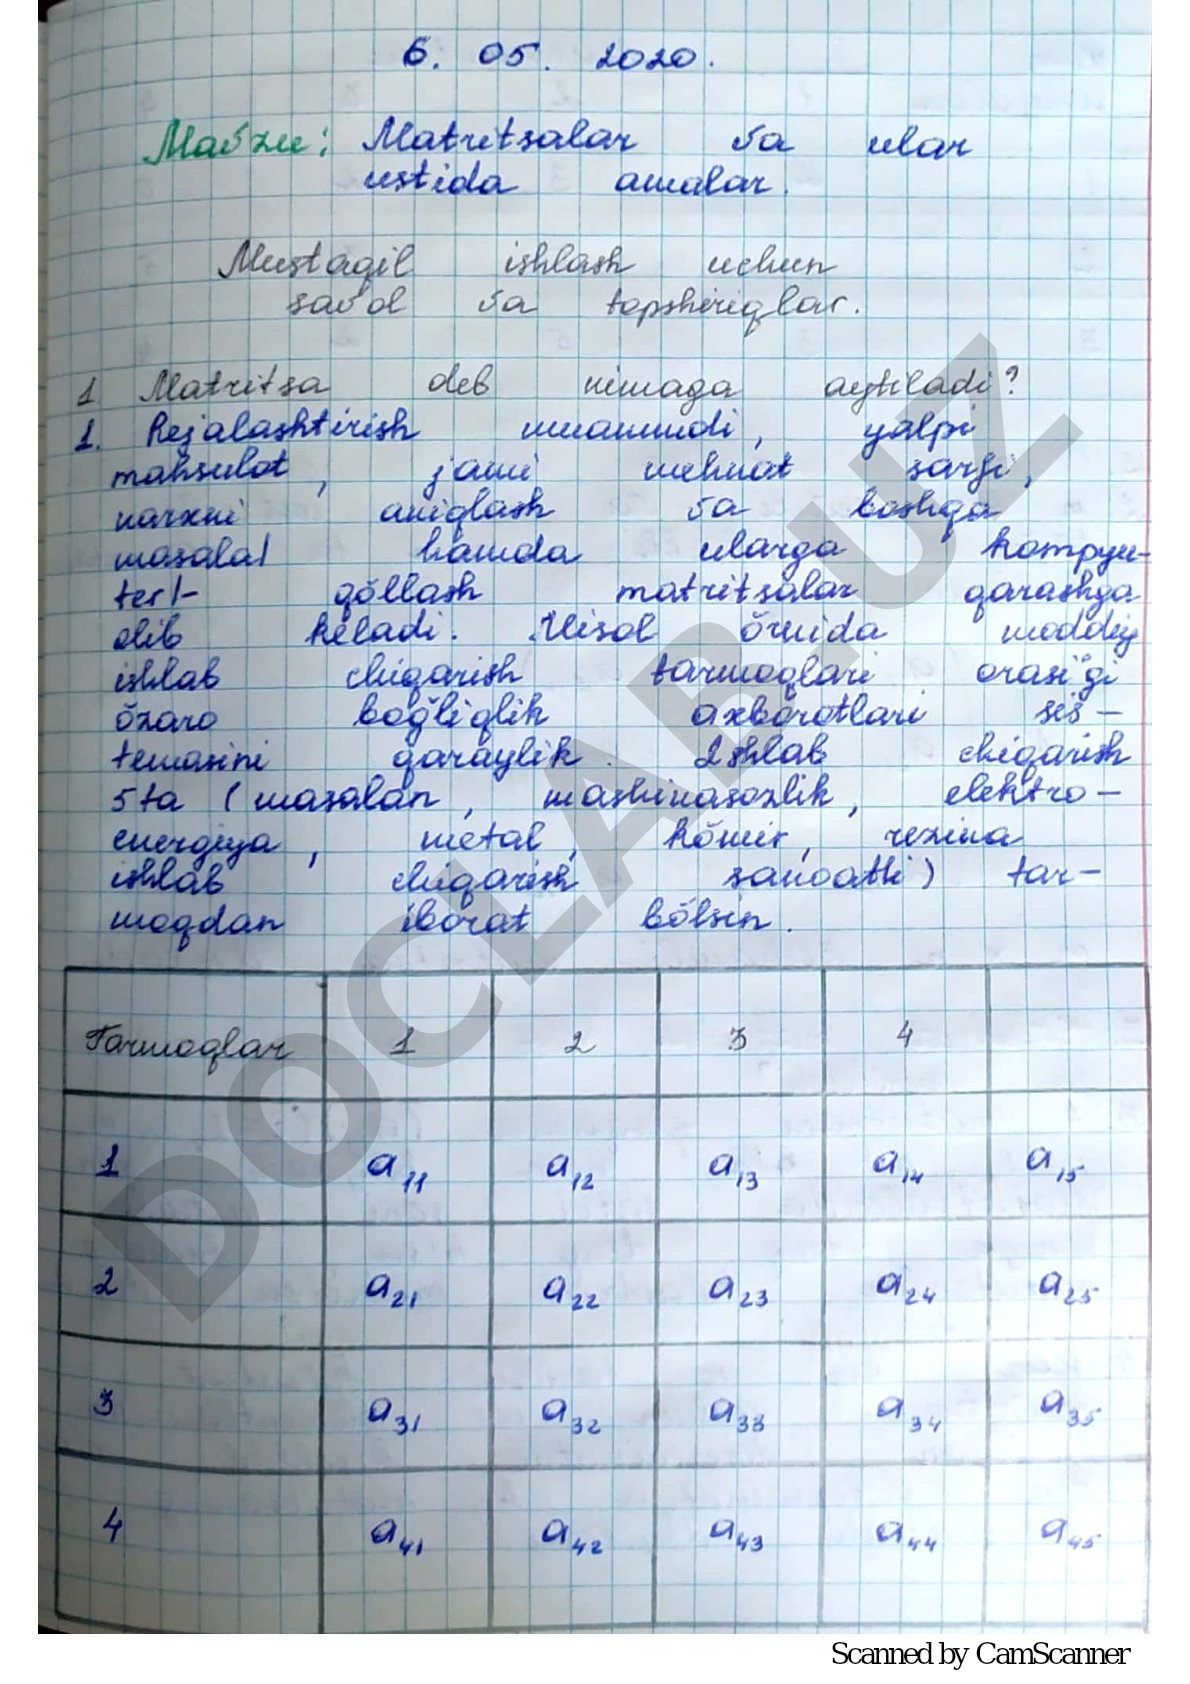 6. 05. 2020.
Mavzu: Matritsalar va ular
ustida amalar.
Mustaqil ishlash uchun
savol va topshiriqlar.
1. Matritsa deb nimaga aytiladi?
1. Rejalashtirish muammodi, yalpi
mahsulot, jami mehnat sarfi,
narxni aniqlash va boshqa
masalal hamda ularga kompyu-
terl- qõllash matritsalar qarashga
olib keladi. Misol õrnida moddiy
ishlab chiqarish tarmoqlari orasi"gi
õzaro boğliqlik axborotlari sis-
temasini qaraylik. Ishlab chiqarish
5ta (masalan, mashinasozlik, elektro-
energiya, metal, kõmir, rezina
ishlab chiqarish sanoatli) tar-
moqdan iborat bõlsin.
Tarmoqlar 1 2 3 4
1 a11 a12 a13 a14 a15
2 a21 a22 a23 a24 a25
3 a31 a32 a33 a34 a35
4 a41 a42 a43 a44 a45
DOCLAB.UZ
Scanned by CamScanner